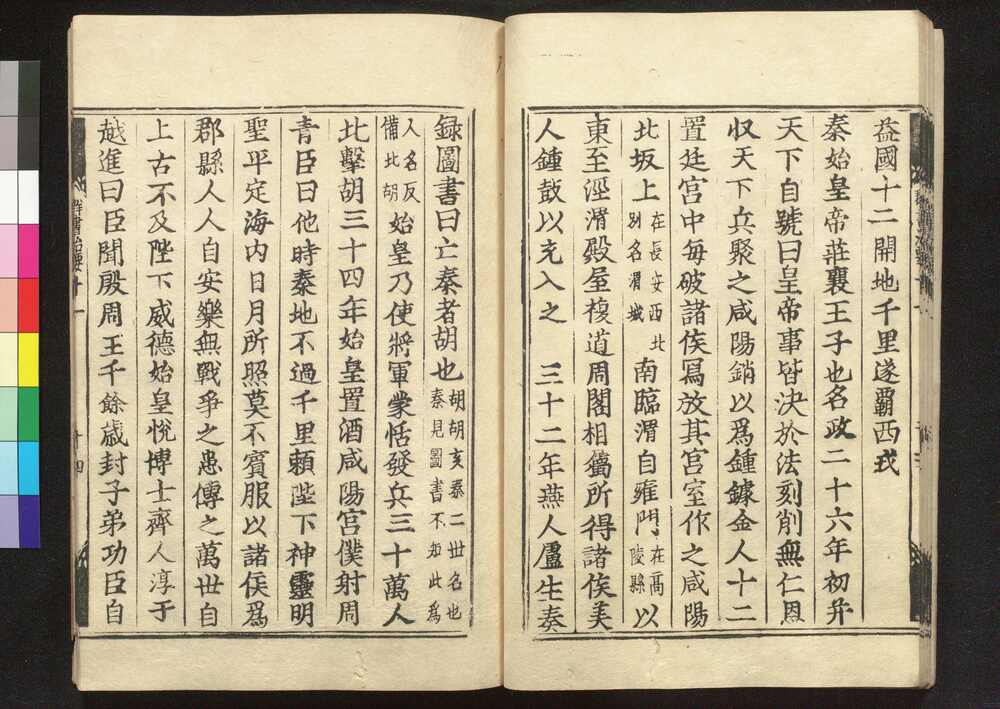 益國十二開地千里遂覇西戎
秦始皇帝莊襄王子也名政二十六年初并
天下自號曰皇帝事皆決於法刻削無仁恩
収天下兵聚之咸陽銷以爲鍾鐻金人十二
置廷宮中毎破諸侯冩放其宮室作之咸陽
北坂上在長安西北別名渭城南臨渭自雍門在高陵縣以
東至涇渭殿屋複道周閣相屬所得諸侯美
人鍾鼓以充入之　三十二年燕人盧生奏
録圖書曰亡秦者胡也胡胡亥秦二世名也秦見圖書不知此爲
人名反備北胡始皇乃使將軍蒙恬發兵三十萬人
北擊胡三十四年始皇置酒咸陽宮僕射周
青臣曰他時秦地不過千里頼陛下神靈明
聖平定海内日月所照莫不賓服以諸侯爲
郡縣人人自安樂無戰爭之患傳之萬世自
上古不及陛下威德始皇悅博士齊人淳于
越進曰臣聞殷周王千餘歲封子弟功臣自
群書治要十一
十四